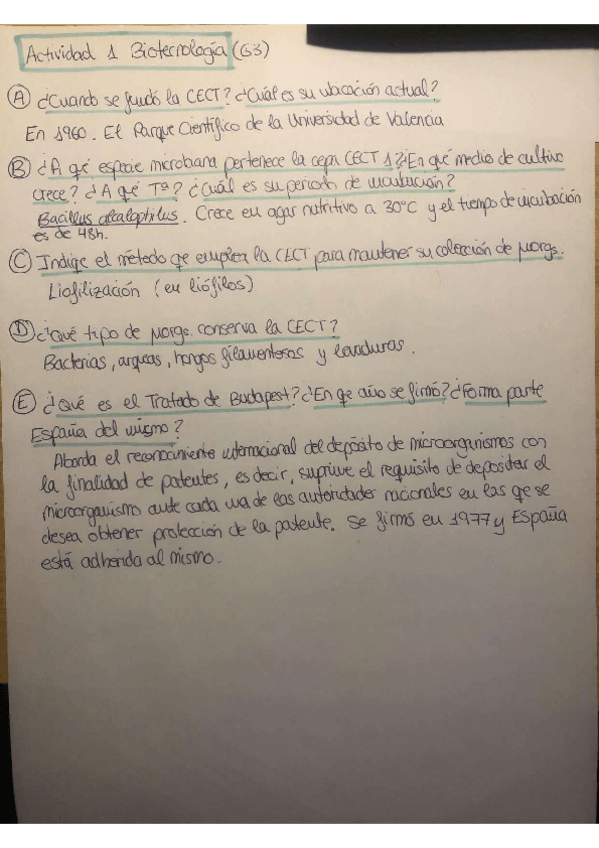 Actividad 1 Biotecnología (G3)
Ⓐ ¿Cuando se fundó la CECT? ¿Cuál es su ubicación actual?
En 1960. El Parque Científico de la Universidad de Valencia
Ⓑ ¿A qé especie microbiana pertenece la cepa CECT 1? ¿En qué medio de cultivo
crece? ¿A qué Tª? ¿Cuál es su periodo de incubación?
Bacillus alcalophilus. Crece en agar nutritivo a 30°C y el tiempo de incubación
es de 48h.
Ⓒ Indiqe el método qe emplea la CECT para mantener su colección de µorgs.
Liofilización (en liófilos)
Ⓓ ¿Qué tipo de µorgs. conserva la CECT?
Bacterias, arqueas, hongos filamentosos y levaduras.
Ⓔ ¿Qué es el Tratado de Budapest? ¿En qe año se firmó? ¿Forma parte
España del mismo?
Aborda el reconocimiento internacional del depósito de microorganismos con
la finalidad de patentes, es decir, suprime el requisito de depositar el
microorganismo ante cada una de las autoridades nacionales en las qe se
desea obtener protección de la patente. Se firmó en 1977 y España
está adherida al mismo.